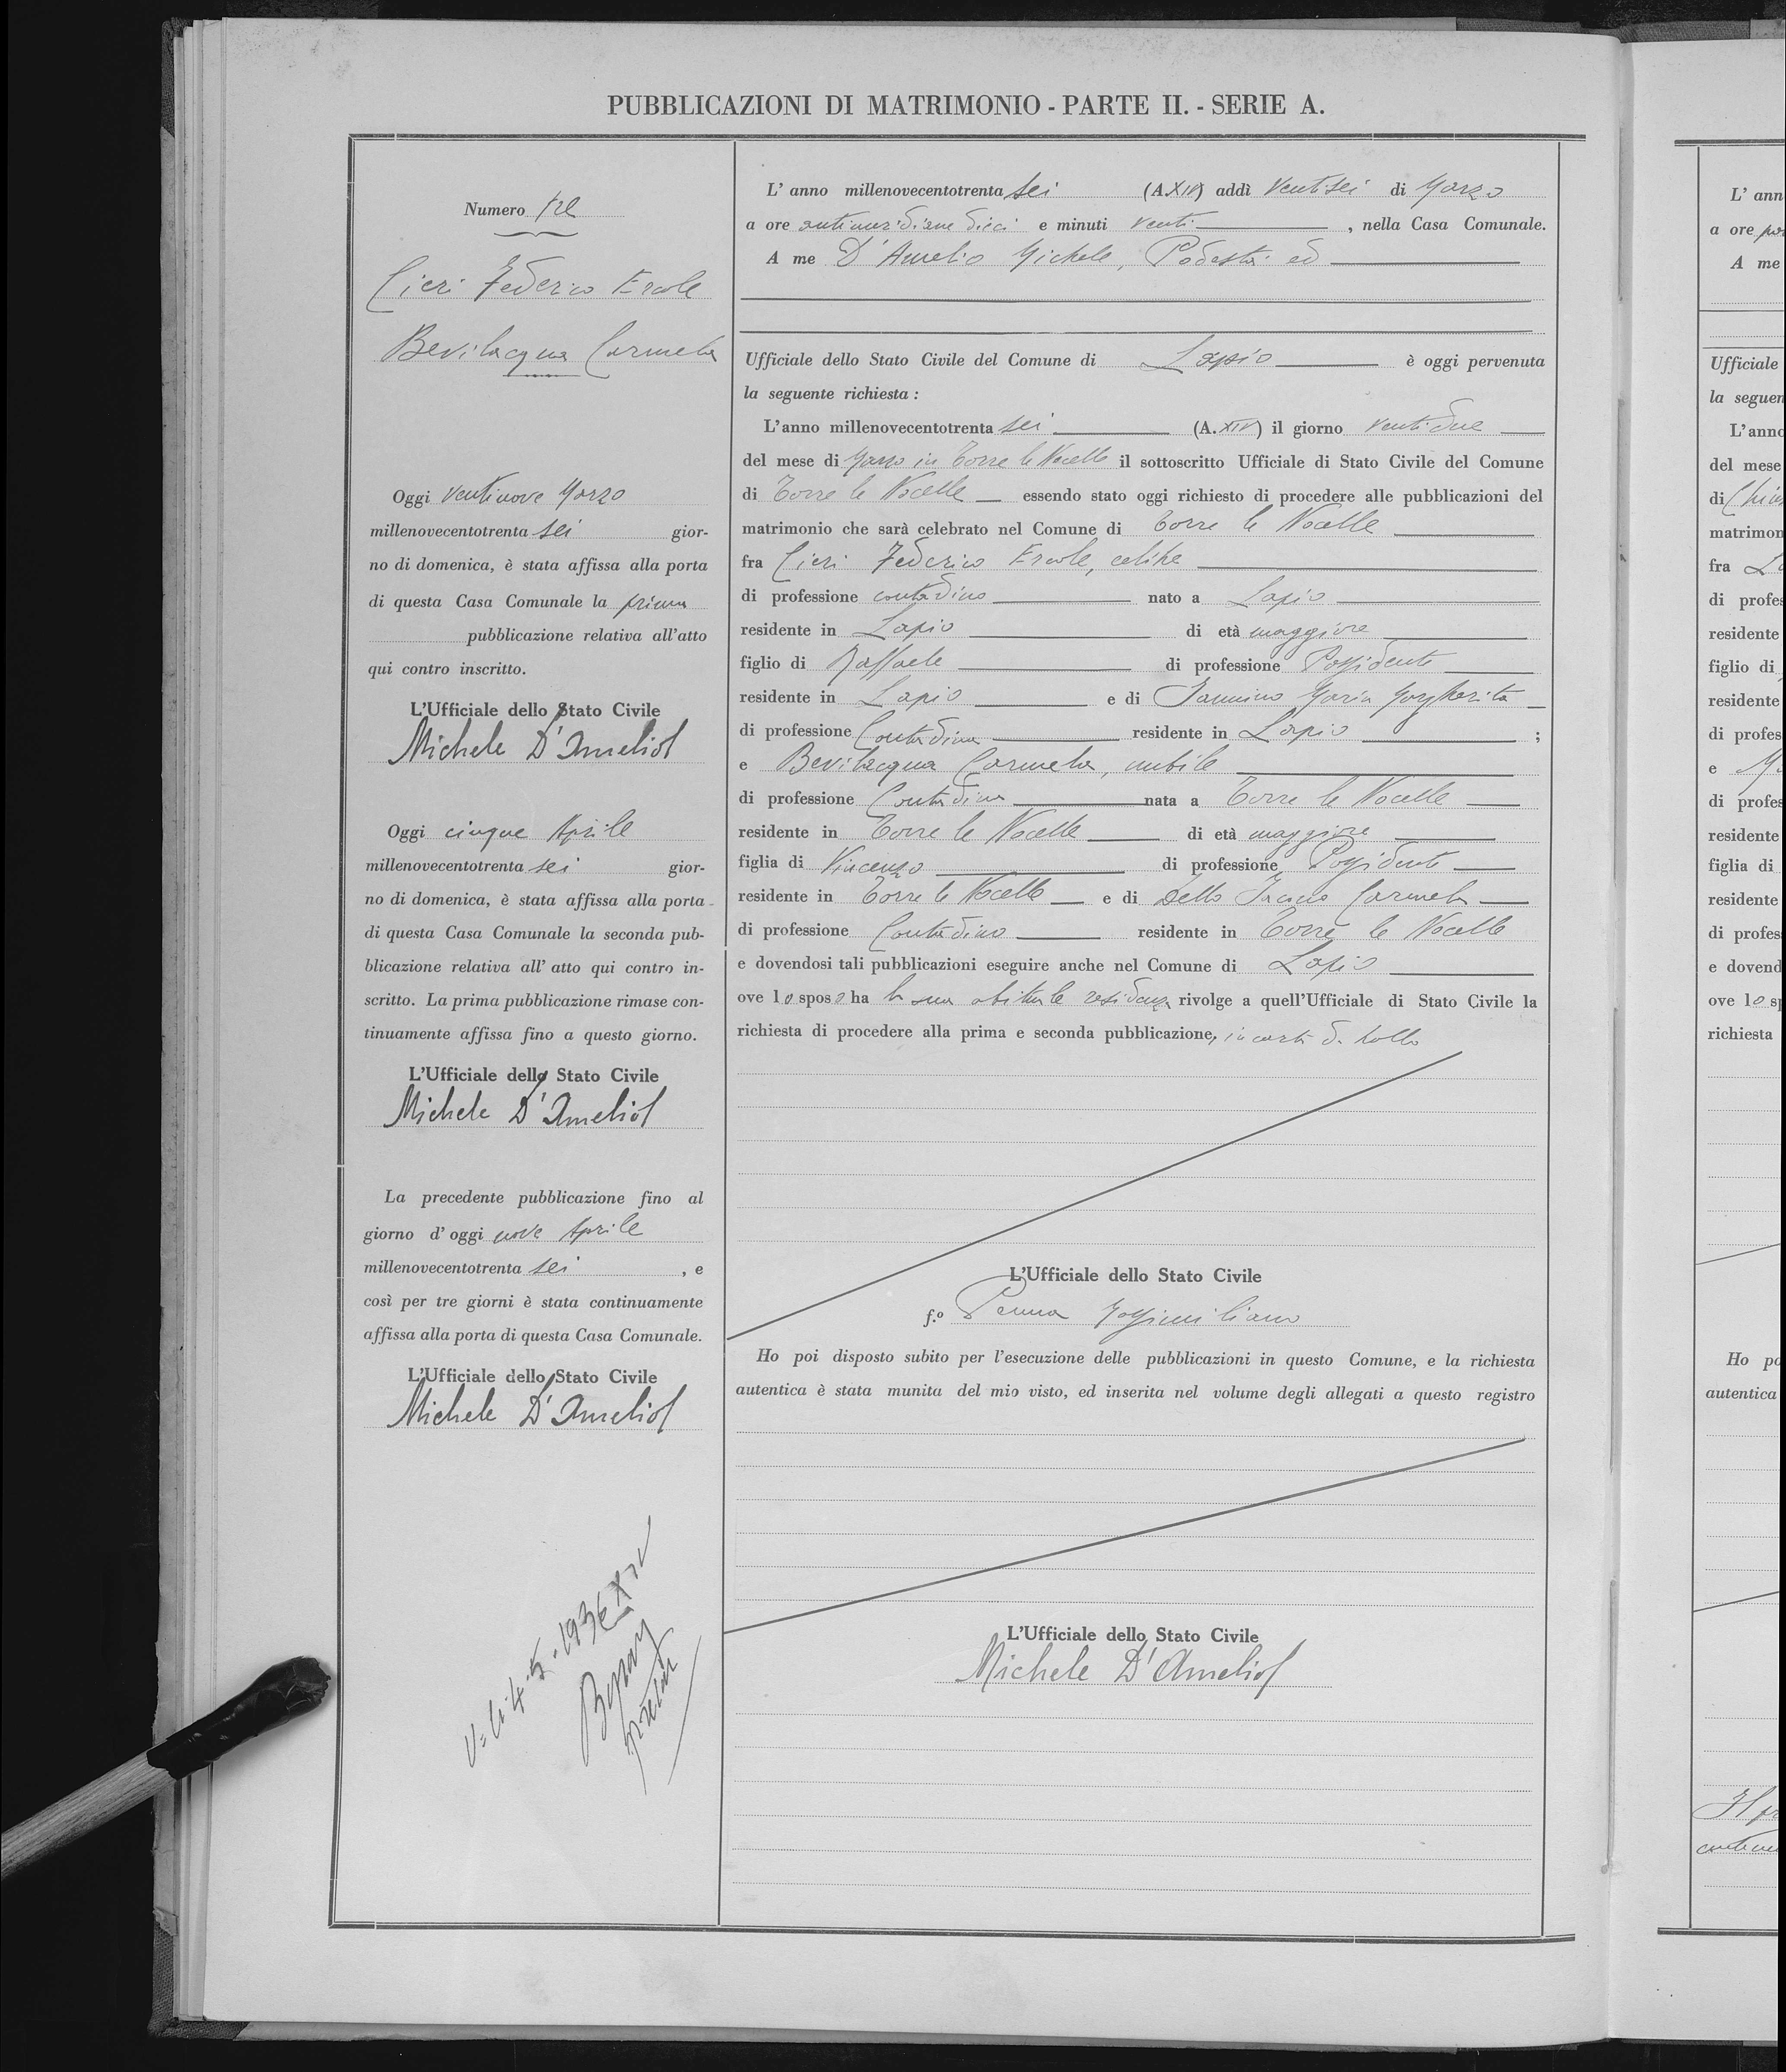 PUBBLICAZIONI DI MATRIMONIO - PARTE II. - SERIE A.
Numero tre
Cieri Federico Ercole
Bevilacqua Carmela
Oggi ventinove Marzo
millenovecentotrenta sei gior-
no di domenica, è stata affissa alla porta
di questa Casa Comunale la prima
pubblicazione relativa all'atto
qui contro inscritto.
L'Ufficiale dello Stato Civile
Michele D'Amelio
Oggi cinque Aprile
millenovecentotrenta sei gior-
no di domenica, è stata affissa alla porta
di questa Casa Comunale la seconda pub-
blicazione relativa all' atto qui contro in-
scritto. La prima pubblicazione rimase con-
tinuamente affissa fino a questo giorno.
L'Ufficiale dello Stato Civile
Michele D'Amelio
La precedente pubblicazione fino al
giorno d' oggi nove Aprile
millenovecentotrenta sei , e
così per tre giorni è stata continuamente
affissa alla porta di questa Casa Comunale.
L'Ufficiale dello Stato Civile
Michele D'Amelio
V= li 4.5.1936 XIV
L' anno millenovecentotrenta sei (A. XIV) addì ventisei di Marzo
a ore antimeridiane dieci e minuti venti , nella Casa Comunale.
A me D'Amelio Michele, Podestà ed
Ufficiale dello Stato Civile del Comune di Lapio è oggi pervenuta
la seguente richiesta :
L'anno millenovecentotrenta sei (A. XIV) il giorno ventidue
del mese di Marzo in Torre le Nocelle il sottoscritto Ufficiale di Stato Civile del Comune
di Torre le Nocelle essendo stato oggi richiesto di procedere alle pubblicazioni del
matrimonio che sarà celebrato nel Comune di Torre le Nocelle
fra Cieri Federico Ercole, celibe
di professione contadino nato a Lapio
residente in Lapio di età maggiore
figlio di Raffaele di professione Possidente
residente in Lapio e di Iannino Maria Margherita
di professione Contadina residente in Lapio ;
e Bevilacqua Carmela, nubile
di professione Contadina nata a Torre le Nocelle
residente in Torre le Nocelle di età maggiore
figlia di Vincenzo di professione Possidente
residente in Torre le Nocelle e di Dello Iacono Carmela
di professione Contadina residente in Torre le Nocelle
e dovendosi tali pubblicazioni eseguire anche nel Comune di Lapio
ove lo sposo ha la sua abituale residenza rivolge a quell'Ufficiale di Stato Civile la
richiesta di procedere alla prima e seconda pubblicazione, in carta da bollo
L'Ufficiale dello Stato Civile
f.º Penna Massimiliano
Ho poi disposto subito per l'esecuzione delle pubblicazioni in questo Comune, e la richiesta
autentica è stata munita del mio visto, ed inserita nel volume degli allegati a questo registro
L'Ufficiale dello Stato Civile
Michele D'Amelio
L' ann
a ore
A me
Ufficiale
la seguen
L'anno
del mese
di
matrimon
fra
di profes
residente
figlio di
residente
di profes
e
di profes
residente
figlia di
residente
di profes
e dovend
ove lo sp
richiesta
Ho po
autentica